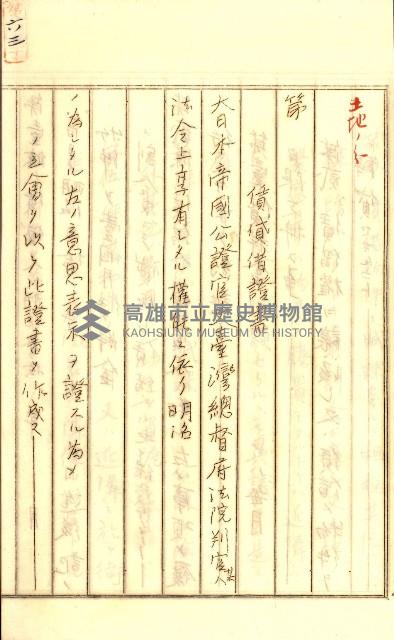 六三
土地ノ分
第
賃貸借證書
大日本帝國公證官臺灣總督府法院判官某
法令上享有シタル權能ニ依リ明治
ノ為シタル左ノ意思表示ヲ證スル為メ
ノ立會ヲ以テ此證書ヲ作成ス
高雄市立歷史博物館
KAOHSIUNG MUSEUM OF HISTORY